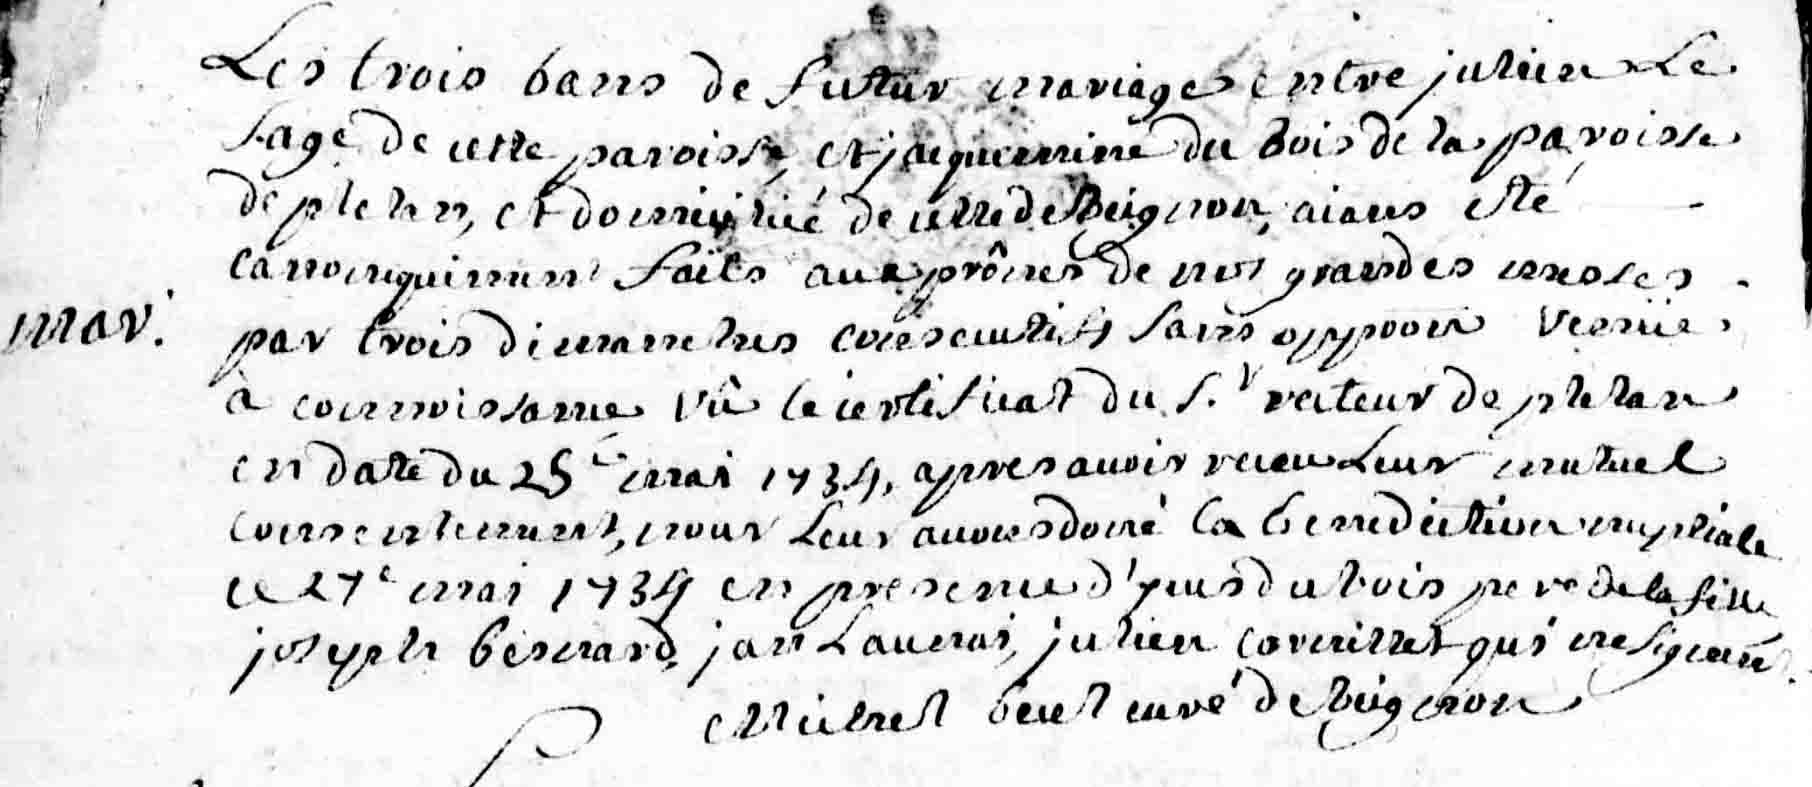 Les trois bans de futur mariage entre julien Le
sage de cette paroisse, et jaquemine du bois de la paroisse
de plelan, et domicilié de celle de Beignon, aians été
canoniquement faits aux prônes de nos grandes messes
par trois dimanches consecutifs sans oppoon venüe
à connoissance vû le certificat du S.r recteur de plelan
en date du 25e mai 1734, apres avoir receu Leur mutuel
consentement, nous Leur avons doné la benediction nuptiale
ce 27e mai 1734 en presence d'yves du bois pere de la fille
joseph besnard, jan Launai, julien qui ne signent.
Michel curé de beignon
mar.